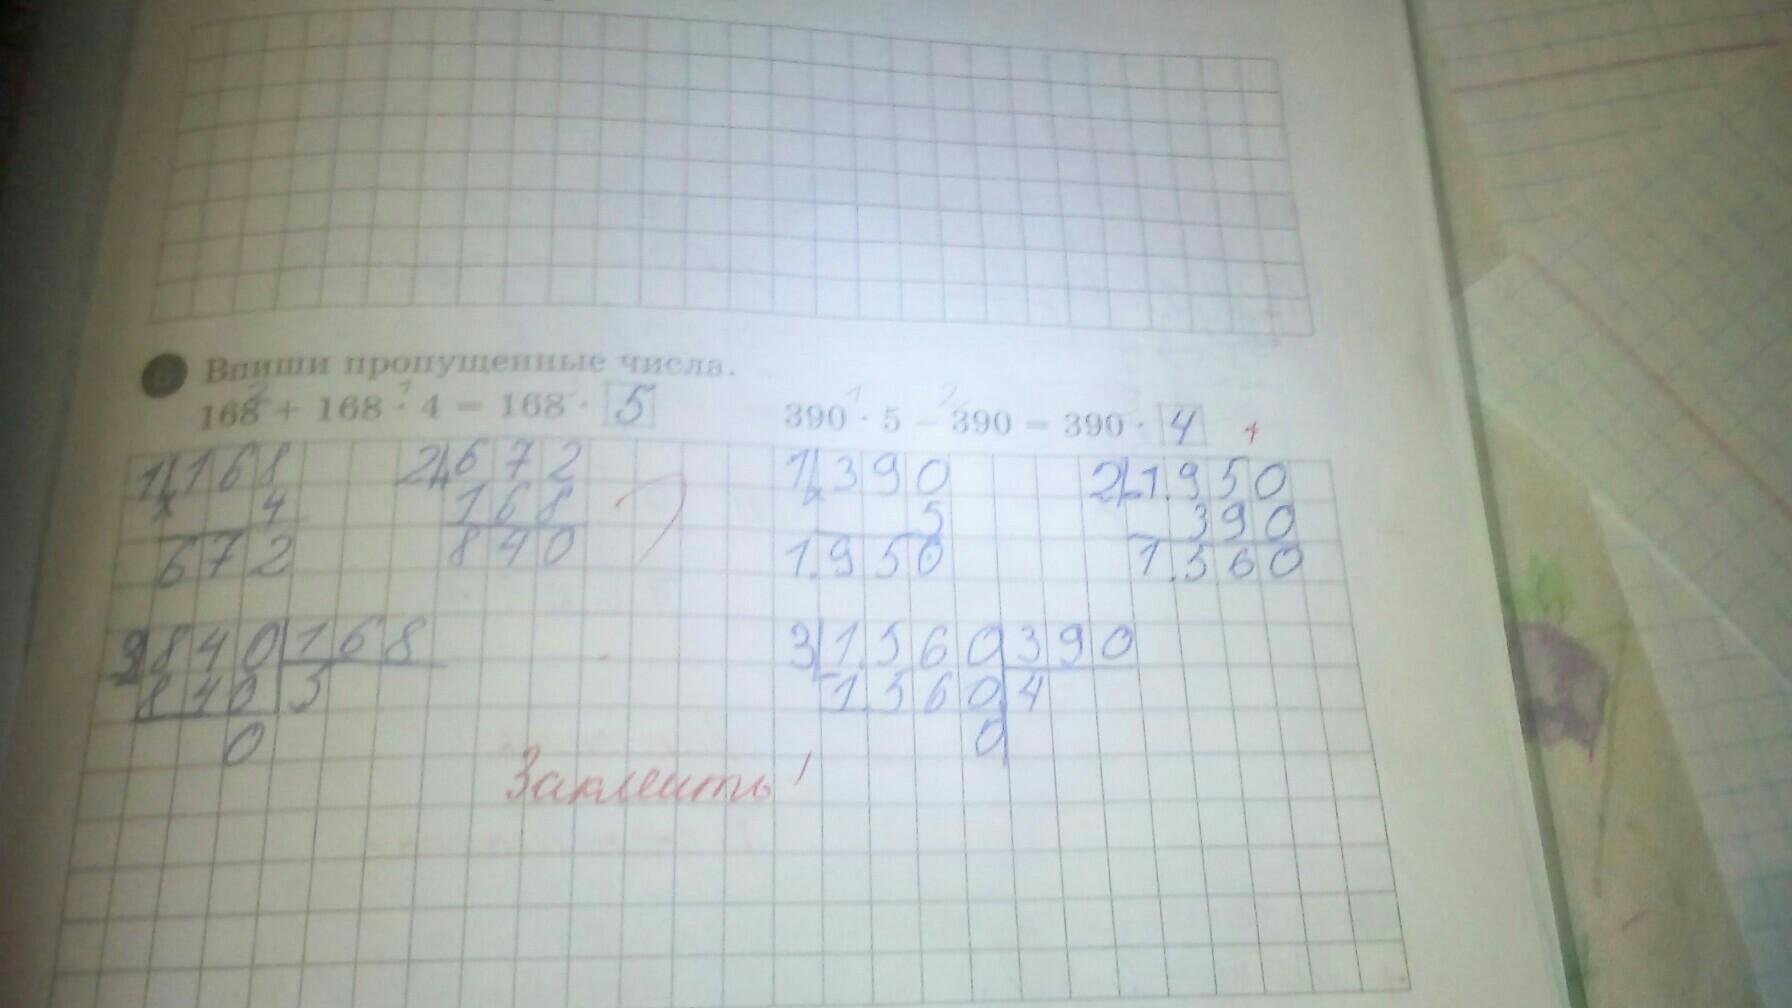 Впиши пропущенные числа.
2 1
168 + 168 · 4 = 168 · 5
1 2
390 · 5 − 390 = 390 · 4 +
1) 168
× 4
672
2) 672
168
840
1) 390
× 5
1.950
2) 1.950
390
1.560
3) 840 168
840 5
0
3) 1.560 390
1.560 4
0
Заклеить!